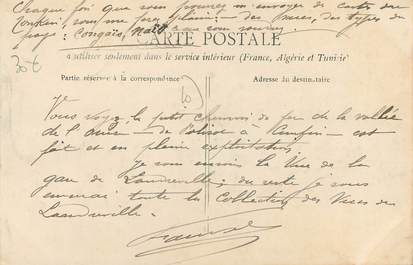 Chaque fois que vous pourrez m'envoyer de cartes du
Tonkin, vous me ferez plaisir: - des Muses, des types du
pays: Congaïs,
CARTE POSTALE
à utiliser seulement dans le service intérieur (France, Algérie et Tunisie)
30€
Partie réservée à la correspondance
Adresse du destinataire
Vous voyez le petit chemin de fer de la vallée
de l'Ource - de Polisot à - est
fait et en pleine exploitation.
Je vous envoie la Vue de la
gare de Landreville; du reste je vous
enverrai toute la Collection des Vues de
Landreville.